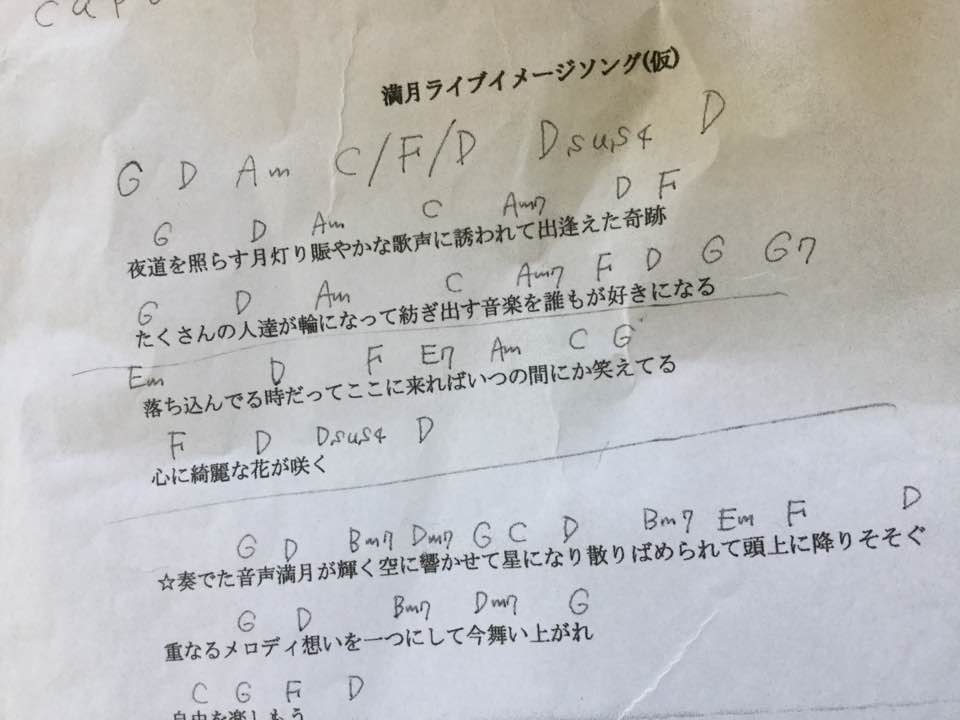 満月ライブイメージソング(仮)
G D Am C/F/D Dsus4 D
G D Am C Am7 D F
夜道を照らす月灯り賑やかな歌声に誘われて出逢えた奇跡
G D Am C Am7 F D G G7
たくさんの人達が輪になって紡ぎ出す音楽を誰もが好きになる
Em D F E7 Am C G
落ち込んでる時だってここに来ればいつの間にか笑えてる
F D Dsus4 D
心に綺麗な花が咲く
G D Bm7 Dm7 G C D Bm7 Em F D
☆奏でた音声満月が輝く空に響かせて星になり散りばめられて頭上に降りそそぐ
G D Bm7 Dm7 G
重なるメロディ想いを一つにして今舞い上がれ
C G F D
自由を楽しもう